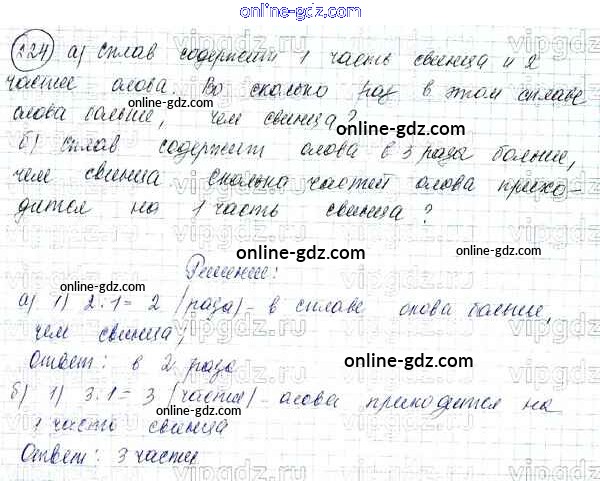 online-gdz.com
224) а) Сплав содержит 1 часть свинца и 2
части олова. Во сколько раз в этом сплаве
online-gdz.com
олова больше, чем свинца?
online-gdz.com
б) Сплав содержит олова в 3 раза больше,
чем свинца сколько частей олова прихо-
online-gdz.com
дится на 1 часть свинца?
online-gdz.com
Решение:
а) 1) 2:1 = 2 (раза) - в сплаве олова больше,
чем свинца;
online-gdz.com
Ответ: в 2 раза
online-gdz.com
б) 1) 3:1 = 3 (части) - олова приходится на
online-gdz.com
1 часть свинца
Ответ: 3 части
online-gdz.com